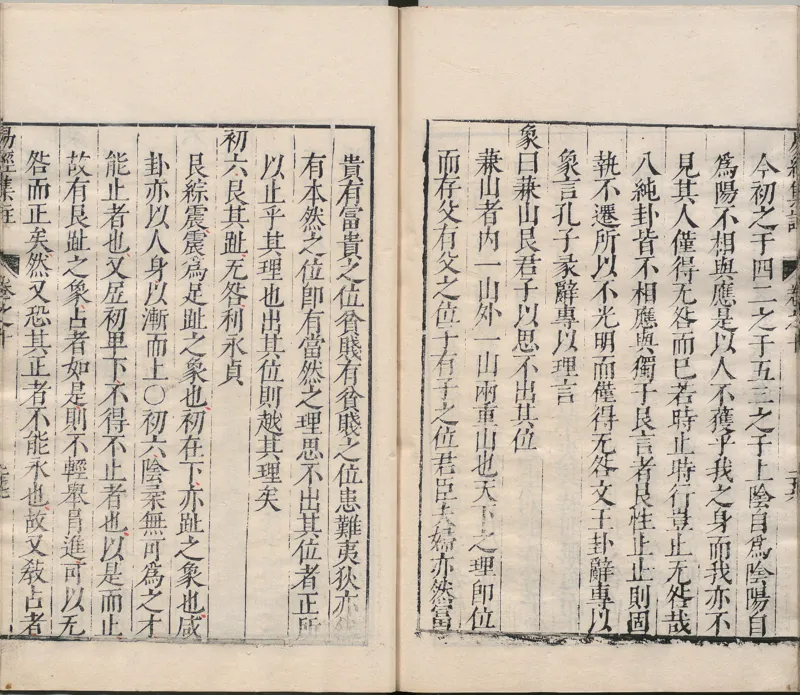 今初之于四二之于五三之于上陰自爲陰陽自
爲陽不相與應是以人不獲乎我之身而我亦不
見其人僅得无咎而已若時止時行豈止无咎哉
八純卦皆不相應與獨于艮言者艮性止止則固
執不遷所以不光明而僅得无咎文王卦辭專以
象言孔子彖辭專以理言
象曰兼山艮君子以思不出其位
兼山者内一山外一山兩重山也天下之理即位
而存父有父之位子有子之位君臣夫婦亦然富
貴有富貴之位貧賤有貧賤之位患難夷狄亦
有本然之位即有當然之理思不出其位者正所
以止乎其理也出其位則越其理矣
初六艮其趾无咎利永貞
艮綜震震爲足趾之象也初在下亦趾之象也咸
卦亦以人身以漸而上○初六陰柔無可爲之才
能止者也又居初卑下不得不止者也以是而止
故有艮趾之象占者如是則不輕舉冒進可以无
咎而正矣然又恐其正者不能永也故又敎占者
易經集註
卷之十